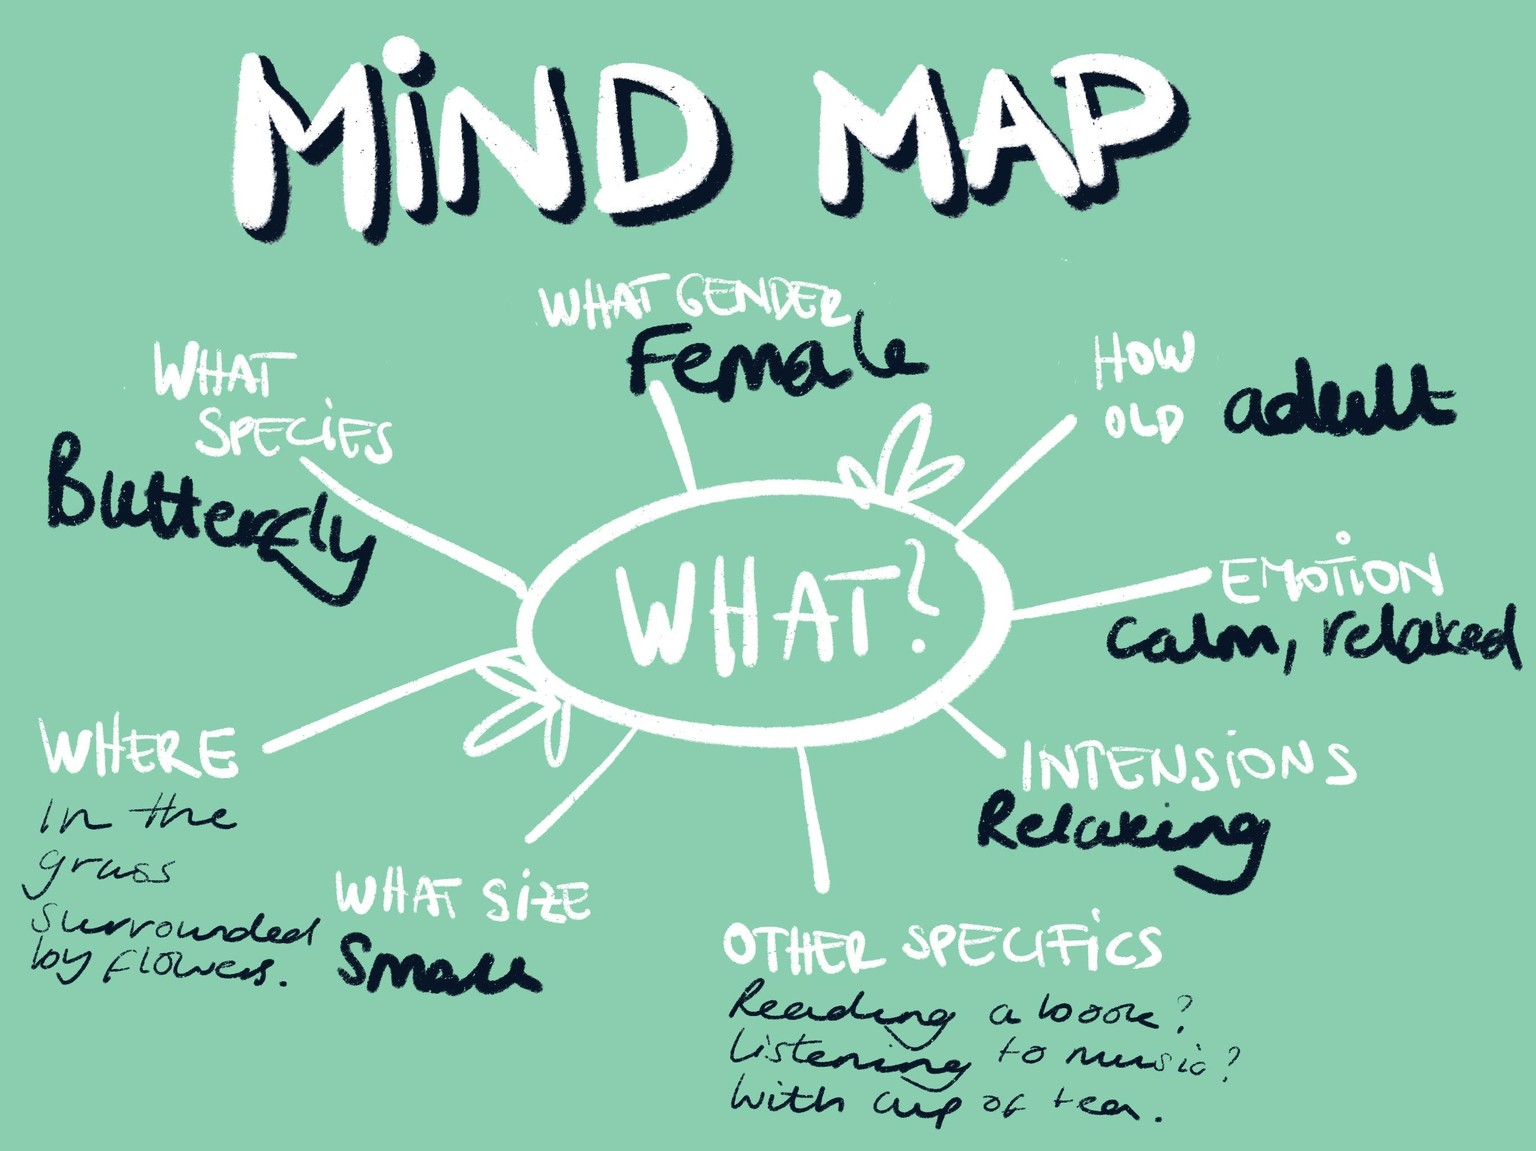 MiND MAP
WHAT GENDER
Female
WHAT
SPECiES
Butterfly
HOW
OLD
adult
WHAT?
EMOTiON
Calm, relaxed
WHERE
In the
grass
surrounded
by flowers.
INTENSiONS
Relaxing
WHAT SiZE
Small
OTHER SPECiFiCS
Reading a book?
Listening to music?
With cup of tea.